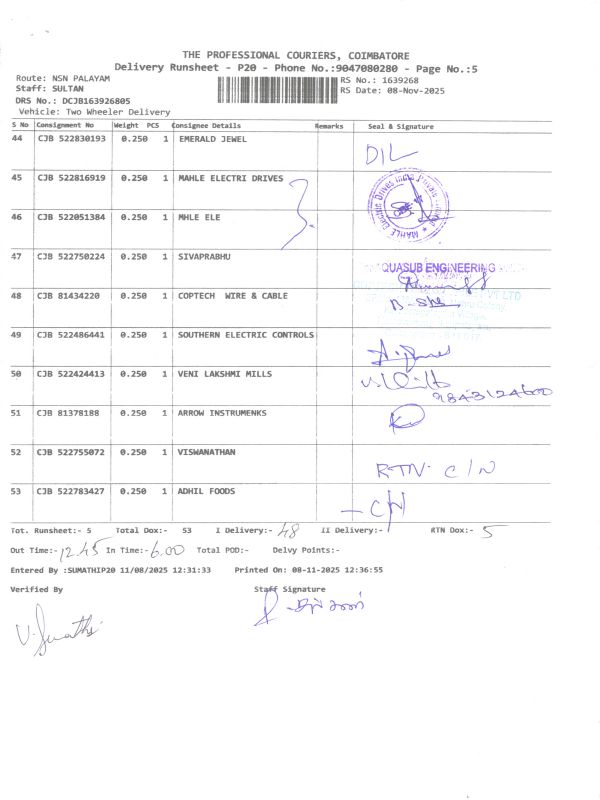 THE PROFESSIONAL COURIERS, COIMBATORE
Delivery Runsheet - P20 - Phone No.:9047080280 - Page No.:5
Route: NSN PALAYAM RS No.: 1639268
Staff: SULTAN RS Date: 08-Nov-2025
DRS No.: DCJB163926805
Vehicle: Two Wheeler Delivery
S No Consignment No Weight PCS Consignee Details Remarks Seal & Signature
44 CJB 522830193 0.250 1 EMERALD JEWEL
DIL
45 CJB 522816919 0.250 1 MAHLE ELECTRI DRIVES
46 CJB 522051384 0.250 1 MHLE ELE
47 CJB 522750224 0.250 1 SIVAPRABHU
QUASUB ENGINEERING
48 CJB 81434220 0.250 1 COPTECH WIRE & CABLE
49 CJB 522486441 0.250 1 SOUTHERN ELECTRIC CONTROLS
50 CJB 522424413 0.250 1 VENI LAKSHMI MILLS
9843124600
51 CJB 81378188 0.250 1 ARROW INSTRUMENKS
52 CJB 522755072 0.250 1 VISWANATHAN
RTN. C/N
53 CJB 522783427 0.250 1 ADHIL FOODS
- C/N
Tot. Runsheet:- 5 Total Dox:- 53 I Delivery:- 48 II Delivery:- RTN Dox:- 5
Out Time:- 12.45 In Time:- 6.00 Total POD:- Delvy Points:-
Entered By :SUMATHIP20 11/08/2025 12:31:33 Printed On: 08-11-2025 12:36:55
Verified By Staff Signature